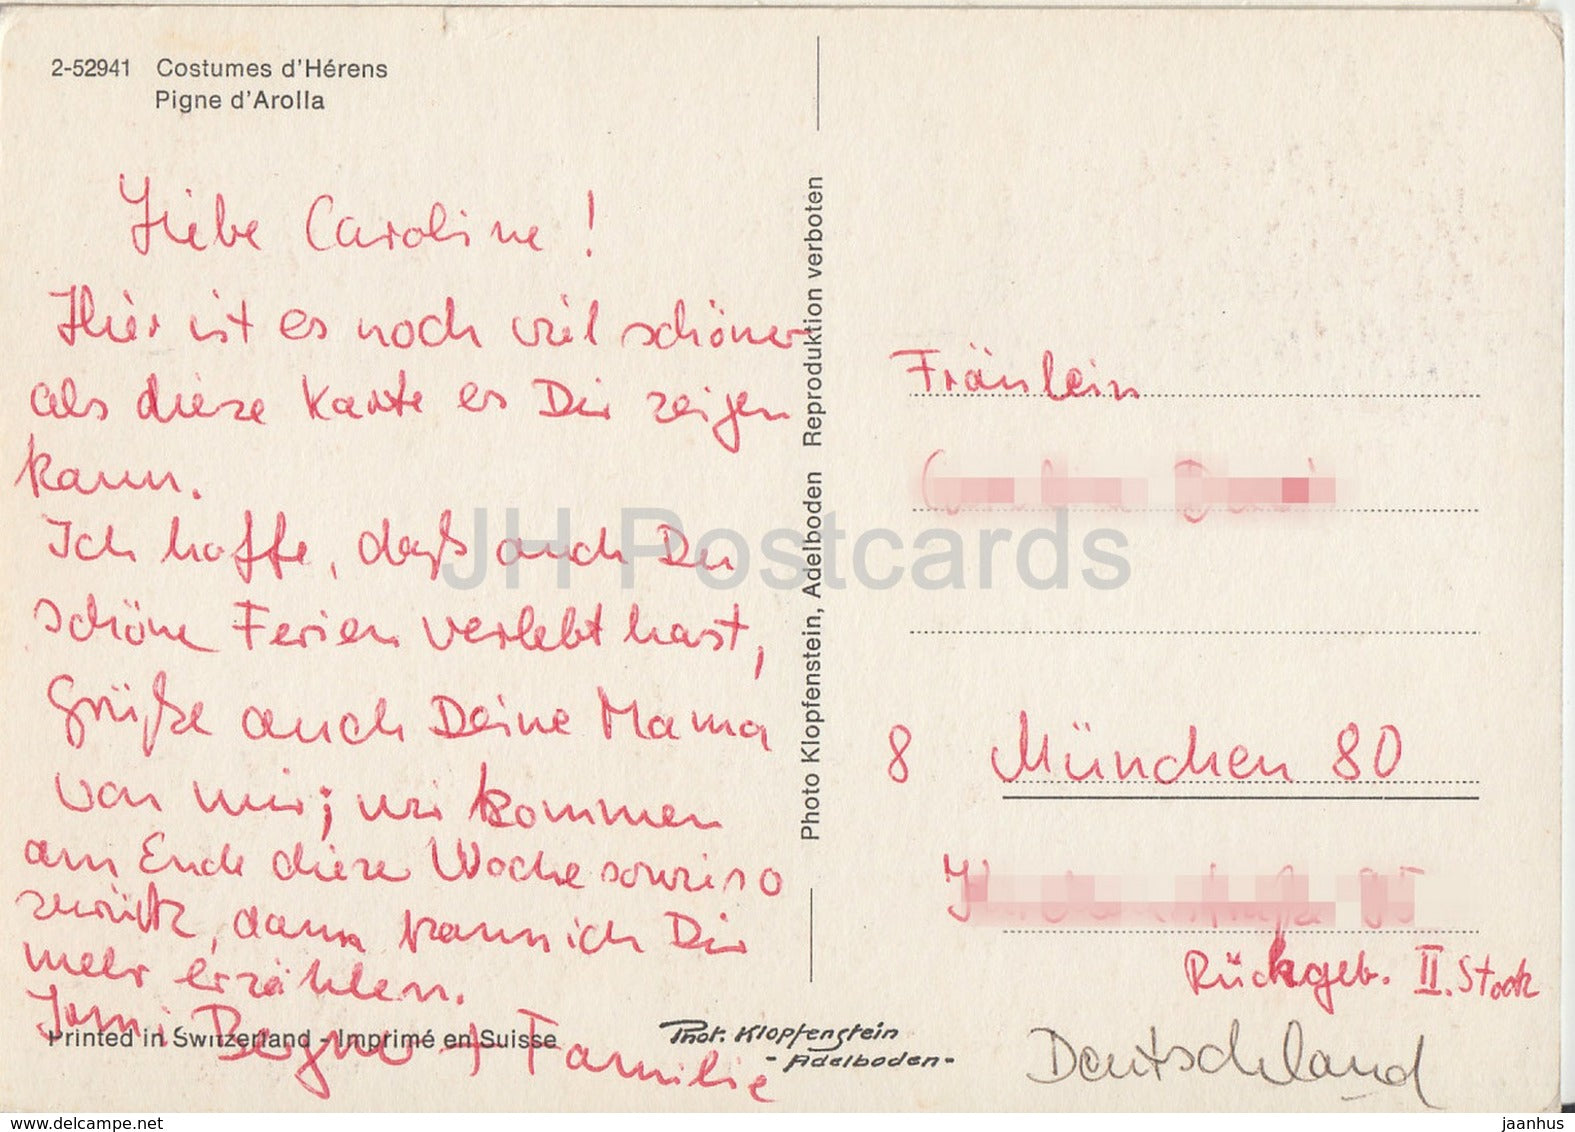 2-52941 Costumes d'Hérens
Pigne d'Arolla
Liebe Caroline!
Hier ist es noch viel schöner
als diese Karte es Dir zeigen
kann.
Ich hoffe, daß auch Du
schöne Ferien verlebt hast,
Grüße auch Deine Mama
von mir; wir kommen
am Ende diese Woche sowieso
zurück, dann kann ich Dir
mehr erzählen.
+ Familie
Printed in Switzerland - Imprimé en Suisse
Phot. Klopfenstein
- Adelboden -
Photo Klopfenstein, Adelboden Reproduktion verboten
Fräulein
8 München 80
Rückgeb. II. Stock
Deutschland
JH Postcards
www.delcampe.net
jaanhus